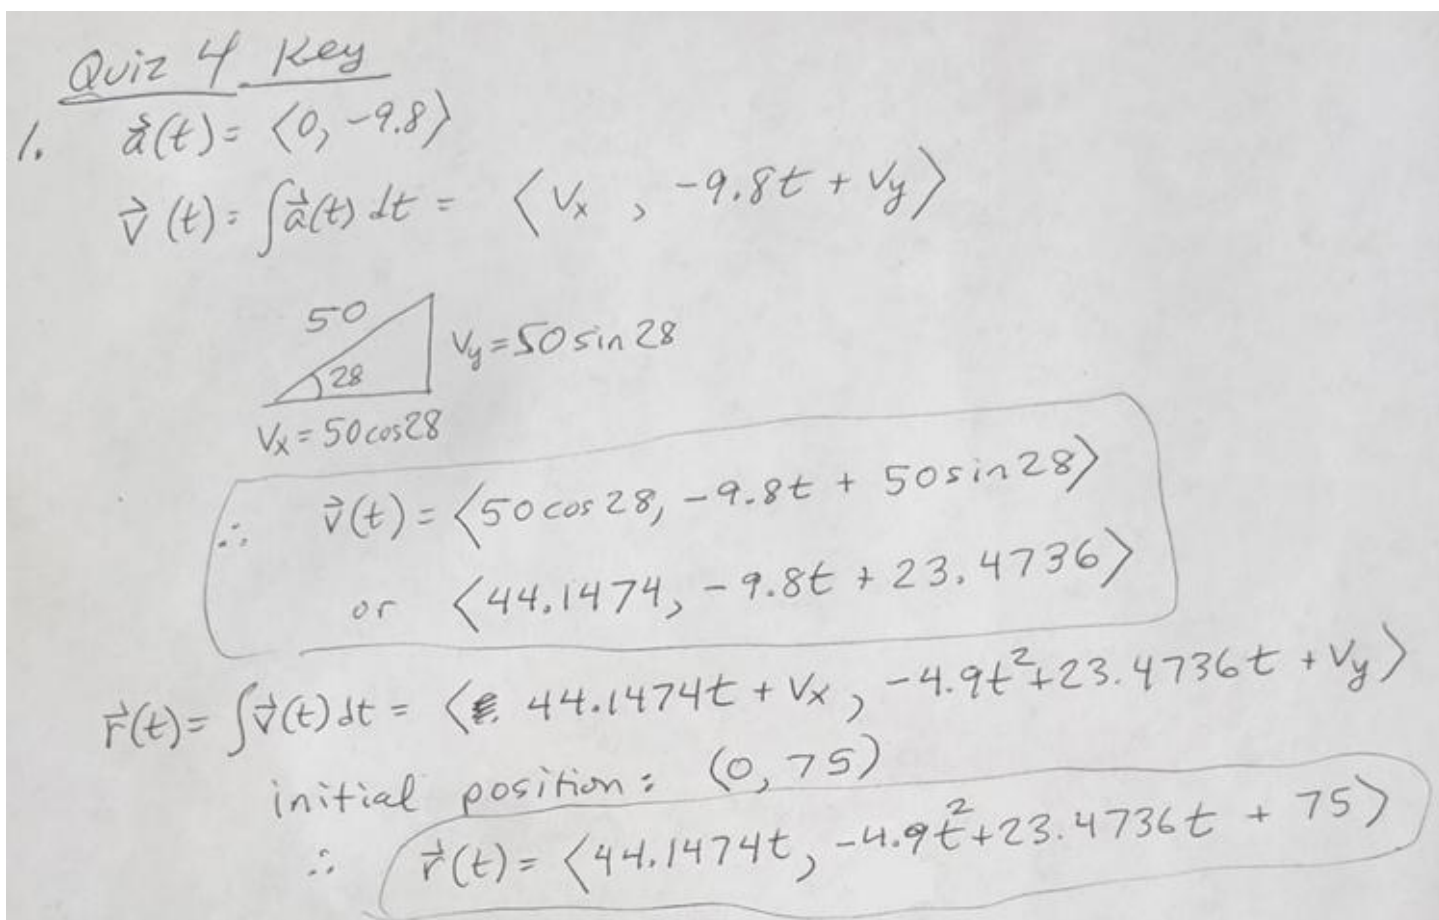 Quiz 4 Key
1. a⃗(t) = ⟨0, -9.8⟩
v⃗(t) = ∫a⃗(t) dt = ⟨Vx , -9.8t + Vy⟩
50
28
Vy = 50 sin 28
Vx = 50 cos 28
∴ v⃗(t) = ⟨50 cos 28, -9.8t + 50 sin 28⟩
or ⟨44.1474, -9.8t + 23.4736⟩
r⃗(t) = ∫v⃗(t) dt = ⟨44.1474t + Vx , -4.9t² + 23.4736t + Vy⟩
initial position: (0, 75)
∴ r⃗(t) = ⟨44.1474t, -4.9t² + 23.4736t + 75⟩